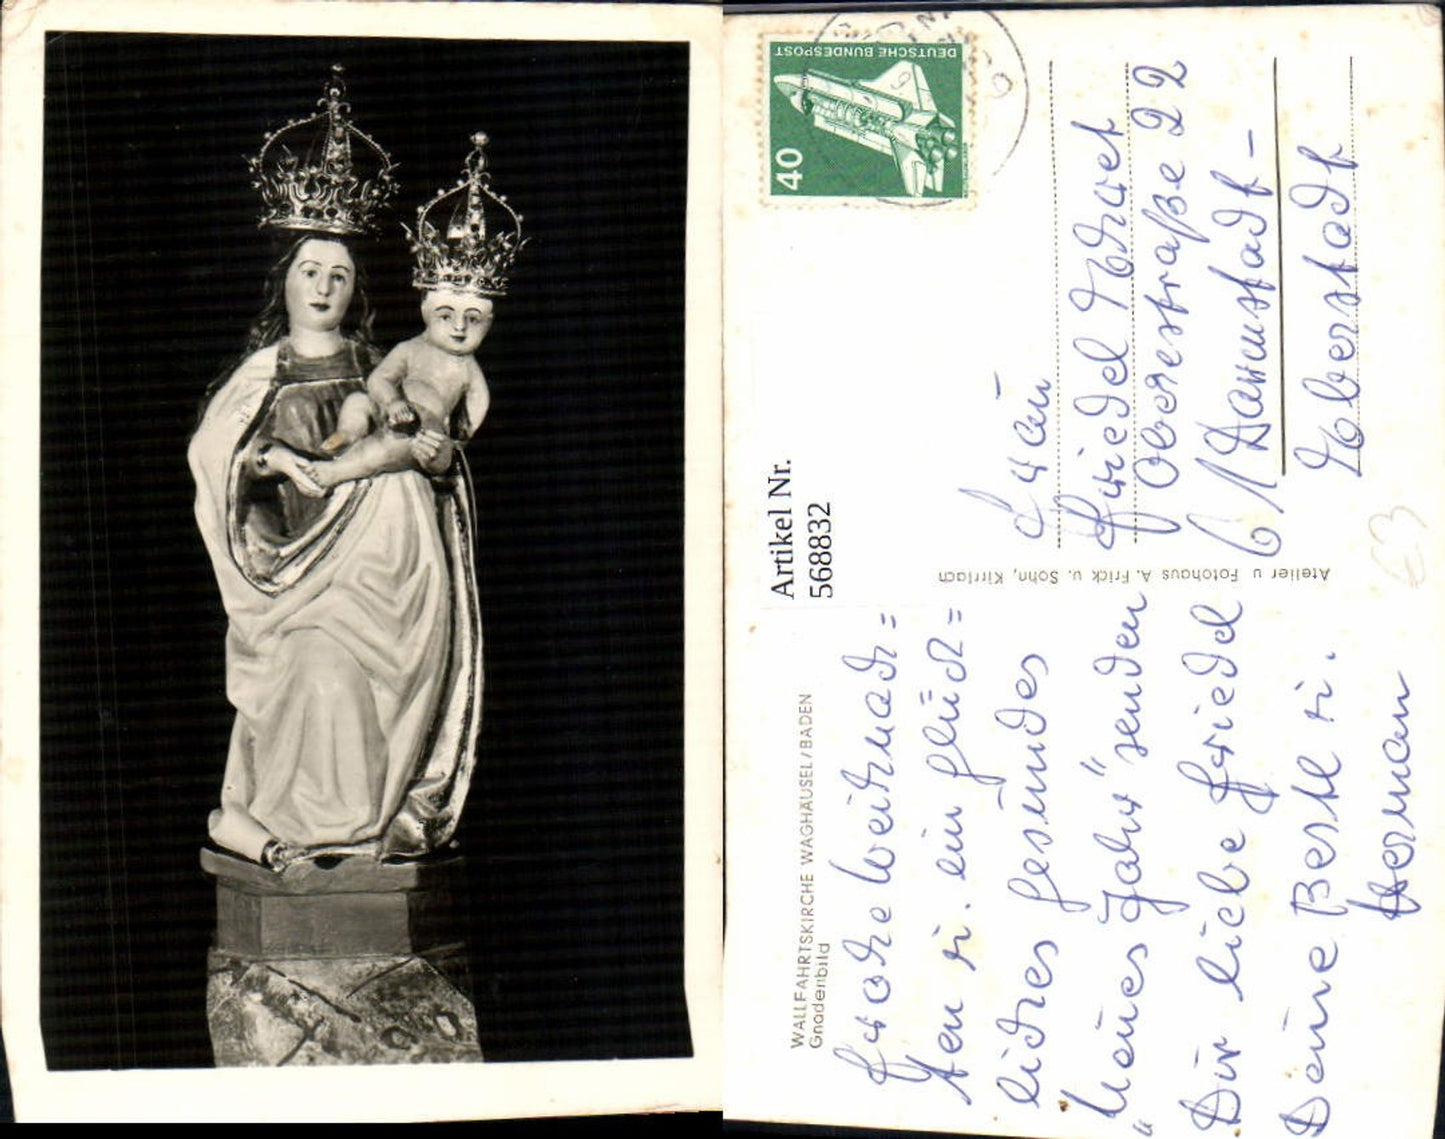 WALLFAHRTSKIRCHE WAGHÄUSEL/BADEN
Gnadenbild
Frohe Weihnach=
ten u. ein glück=
liches gesundes
"Neues Jahr" senden
Dir liebe Friedel
Deine Bertl u.
Herman
Artikel Nr.
568832
Atelier u Fotohaus A. Frick u. Sohn, Kirrlach
DEUTSCHE BUNDESPOST
40
Friedel
Oberstraße 22
61 Darmstadt-
Eberstadt